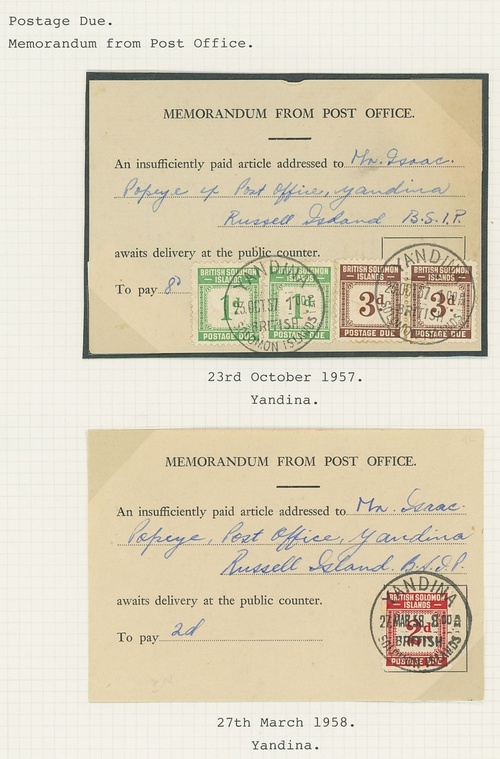 Postage Due.
Memorandum from Post Office.
MEMORANDUM FROM POST OFFICE.
An insufficiently paid article addressed to Mr. Isaac.
Popeye c/o Post Office, Yandina
Russell Island B.S.I.P.
awaits delivery at the public counter.
To pay 8d
BRITISH SOLOMON ISLANDS
1d
POSTAGE DUE
BRITISH SOLOMON ISLANDS
1d
POSTAGE DUE
BRITISH SOLOMON ISLANDS
3d.
POSTAGE DUE
BRITISH SOLOMON ISLANDS
3d.
POSTAGE DUE
YANDINA
23 OCT 57
BRITISH
SOLOMON ISLANDS
YANDINA
BRITISH
SOLOMON ISLANDS
23rd October 1957.
Yandina.
MEMORANDUM FROM POST OFFICE.
An insufficiently paid article addressed to Mr. Isaac.
Popeye, Post Office, Yandina
Russell Island. B.S.I.P.
awaits delivery at the public counter.
To pay 2d
BRITISH SOLOMON ISLANDS
2d
POSTAGE DUE
YANDINA
27 MAR 58
BRITISH
SOLOMON ISLANDS
27th March 1958.
Yandina.